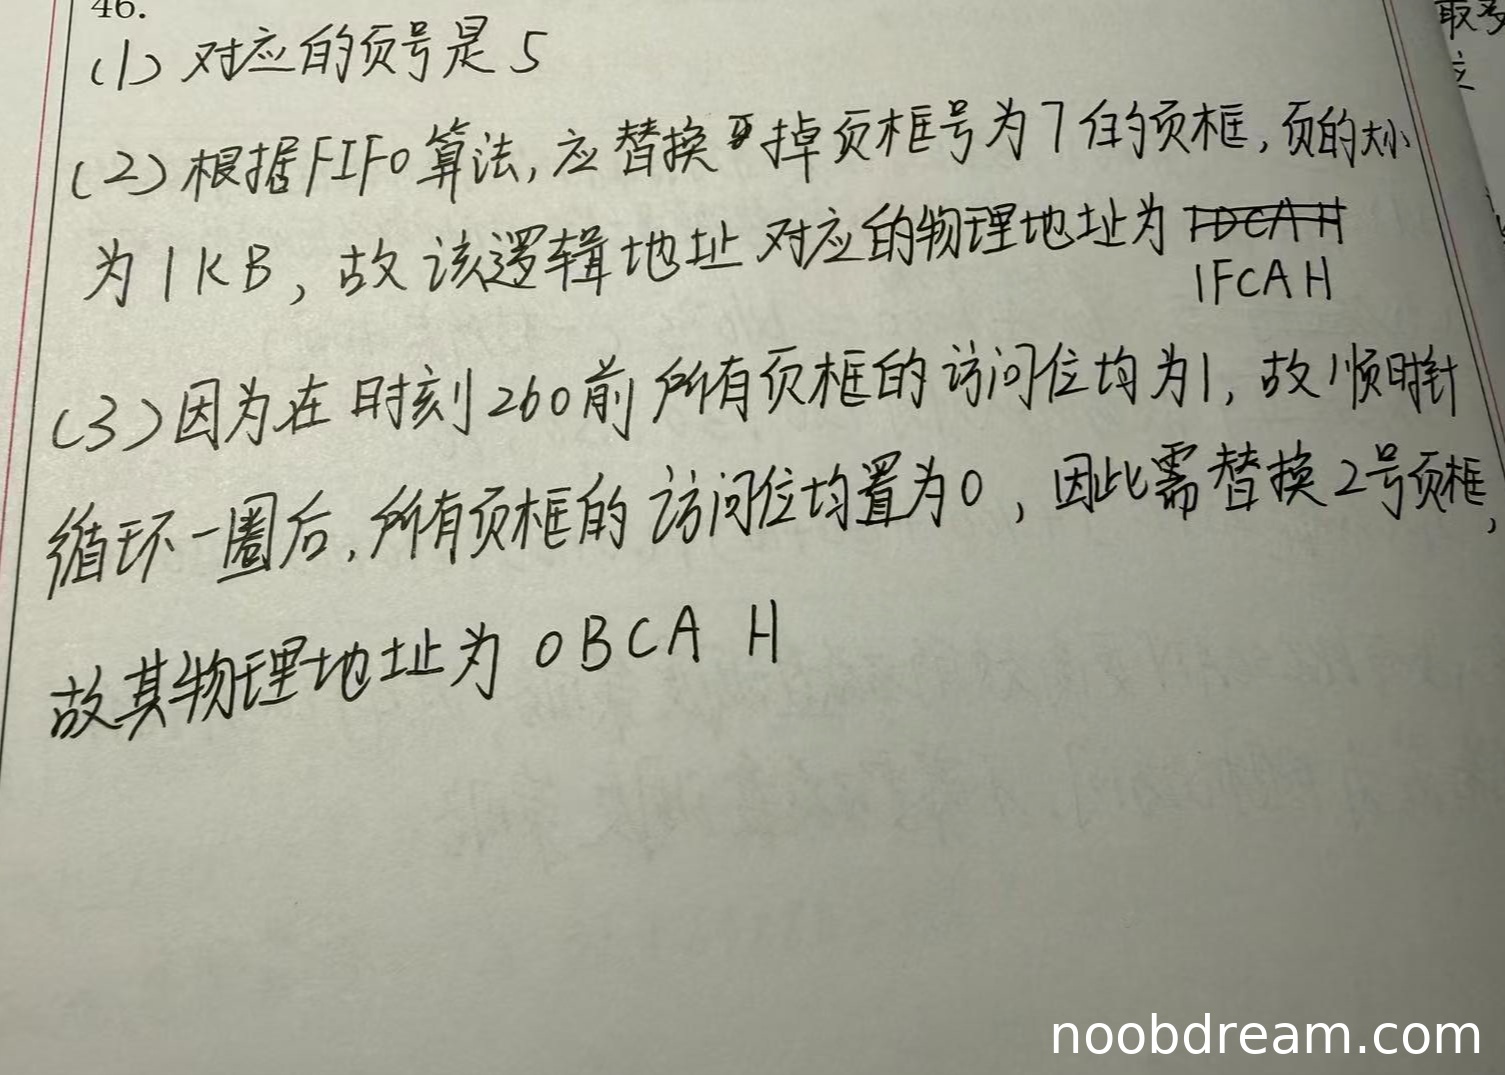 46.
(1) 对应的页号是5
(2) 根据FIFO算法,应替换掉页框号为7的页框,页的大小
为1KB,故该逻辑地址对应的物理地址为 1DCAH
1FCAH
(3) 因为在时刻260前所有页框的访问位均为1,故顺时针
循环一圈后,所有页框的访问位均置为0,因此需替换2号页框,
故其物理地址为 0BCA H
取多
noobdream.com